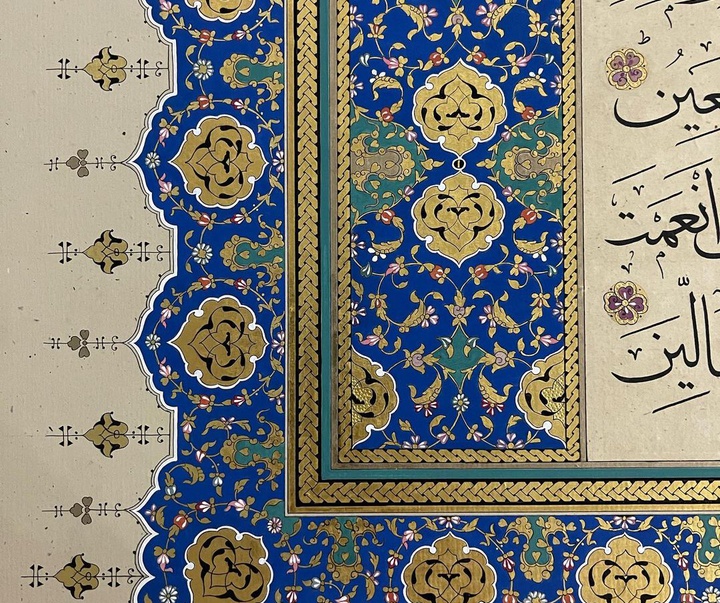 عينُ
انْعَمْتَ
الّينَ